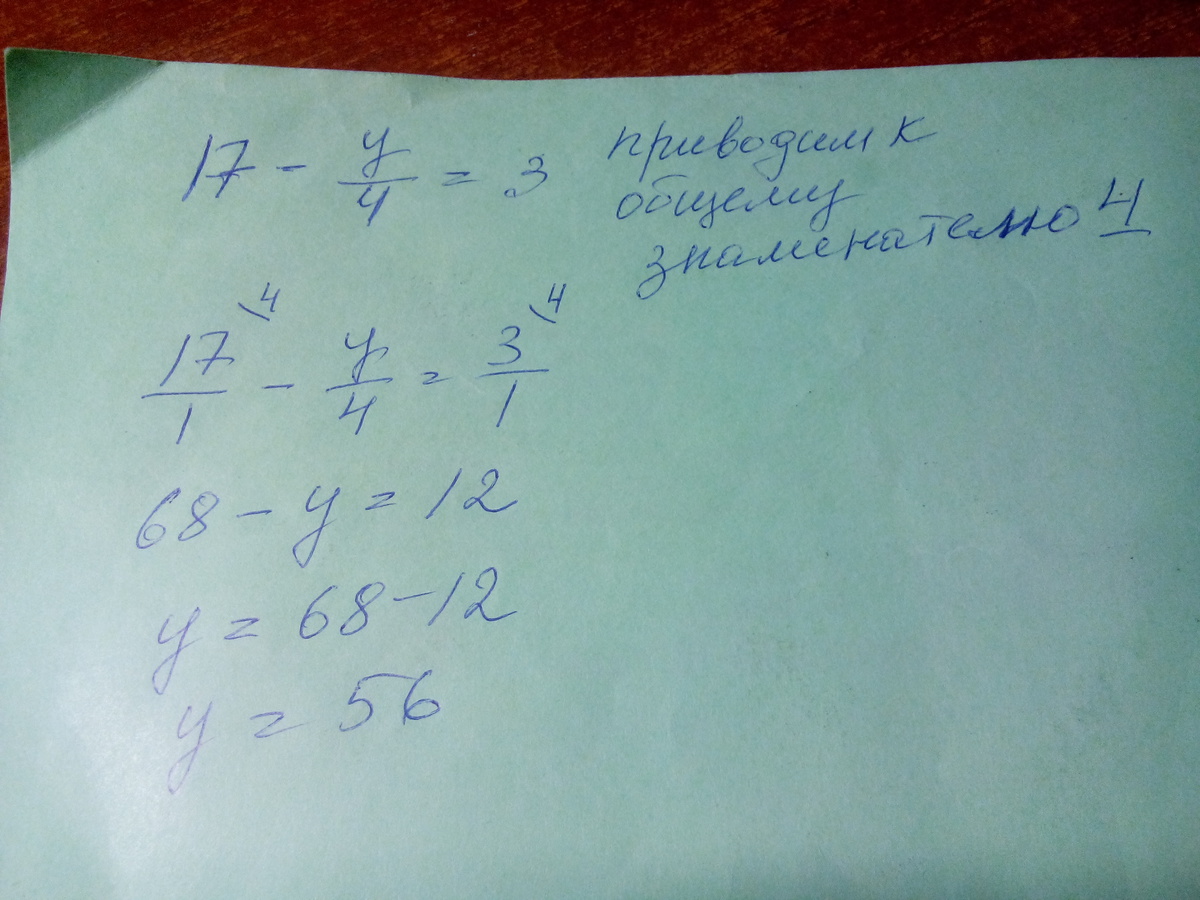 17 - y/4 = 3
приводим к
общему
знаменателю 4
17/1 \4 - y/4 = 3/1 \4
68 - y = 12
y = 68 - 12
y = 56